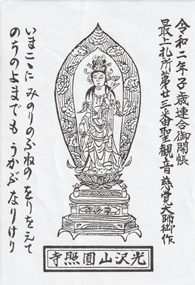 令和二年子歳連合御開帳
最上札所第廿三番聖観音慈覚大師御作
いまここに みのりのふねの をりをえて
のちのよまでも うかぶなりけり
光沢山圓照寺